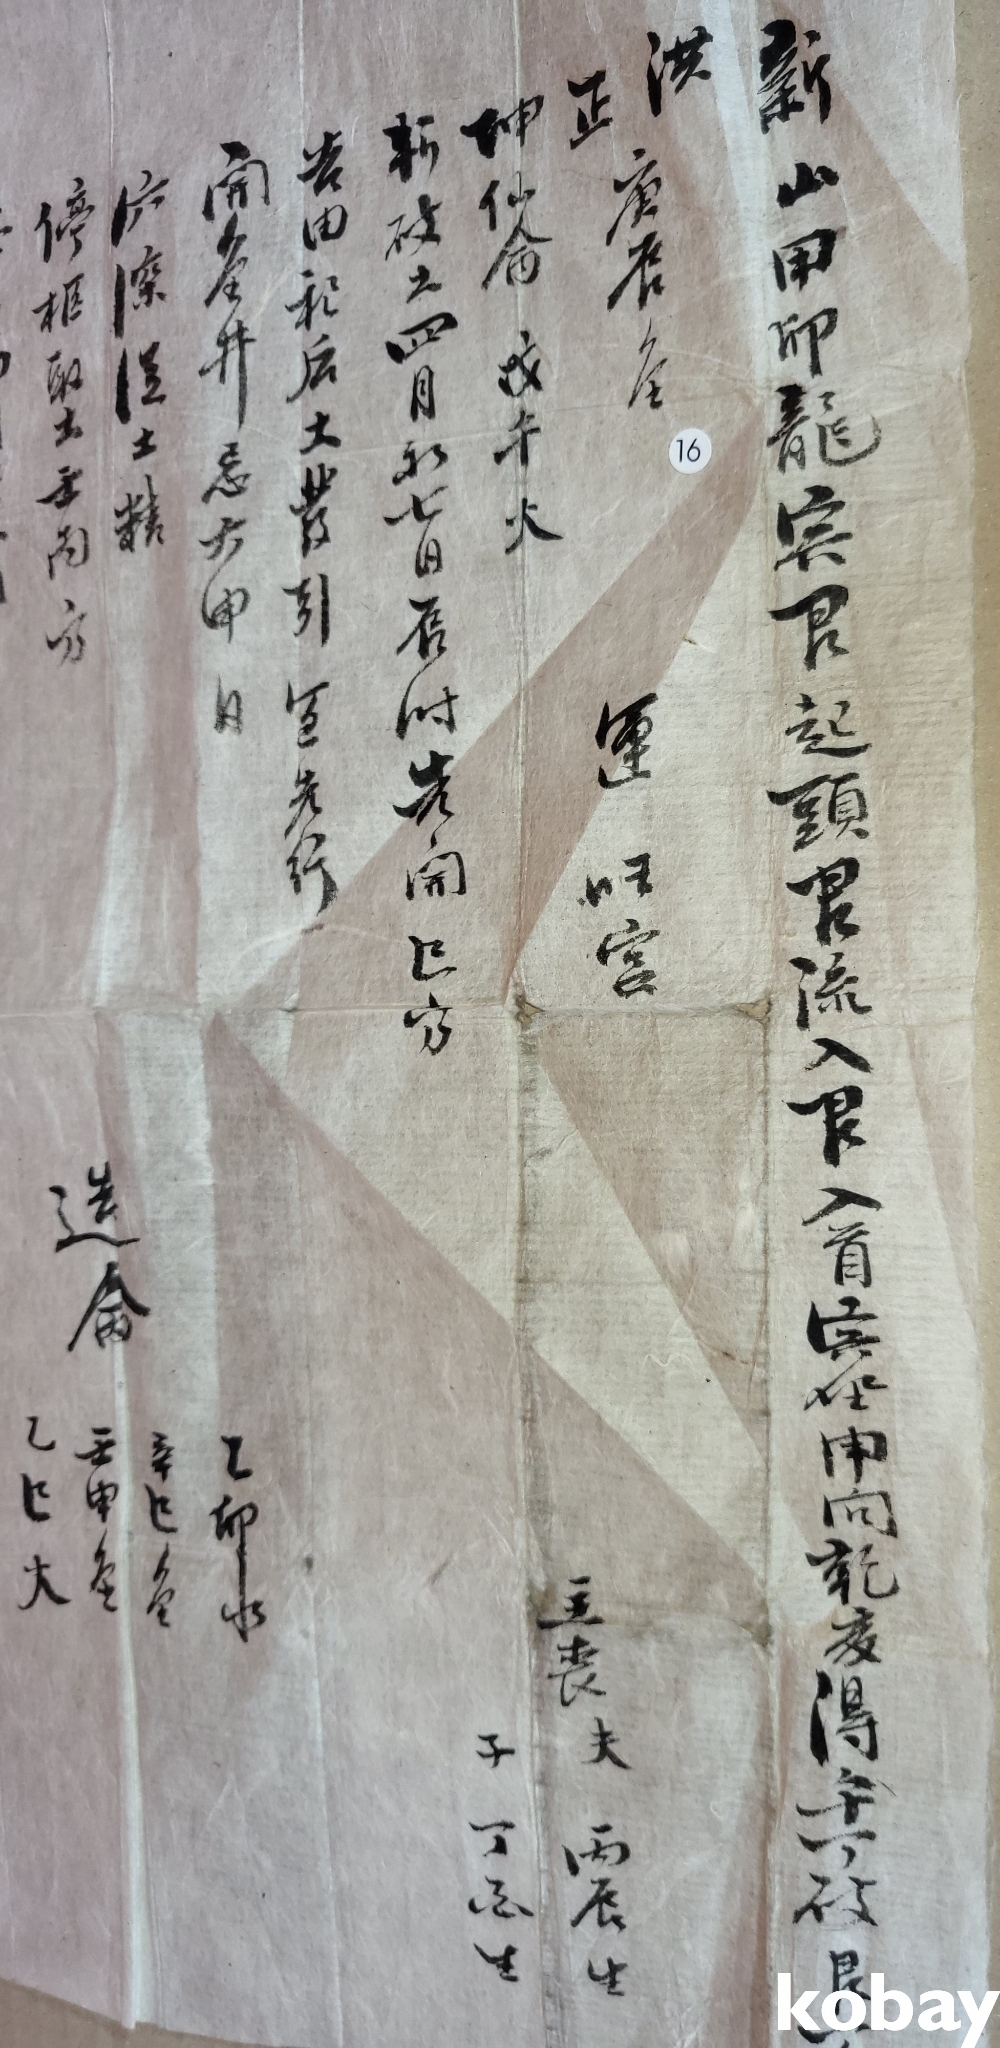 新山甲卯龍宗艮起頭艮流入艮入首寅坐申向乾亥得午丁破艮
洪
正 庚辰金 運 旺宮
主喪夫 丙辰生
坤仙命 戊午火
子 丁酉生
斬破土四月初七日辰時先開巳方
告由祀后土發引 宜先行
開金井忌六甲日
乙卯水
辛巳金
穴深浔土精
造命 壬申金
停柩取土壬丙方
乙巳火
16
kobay